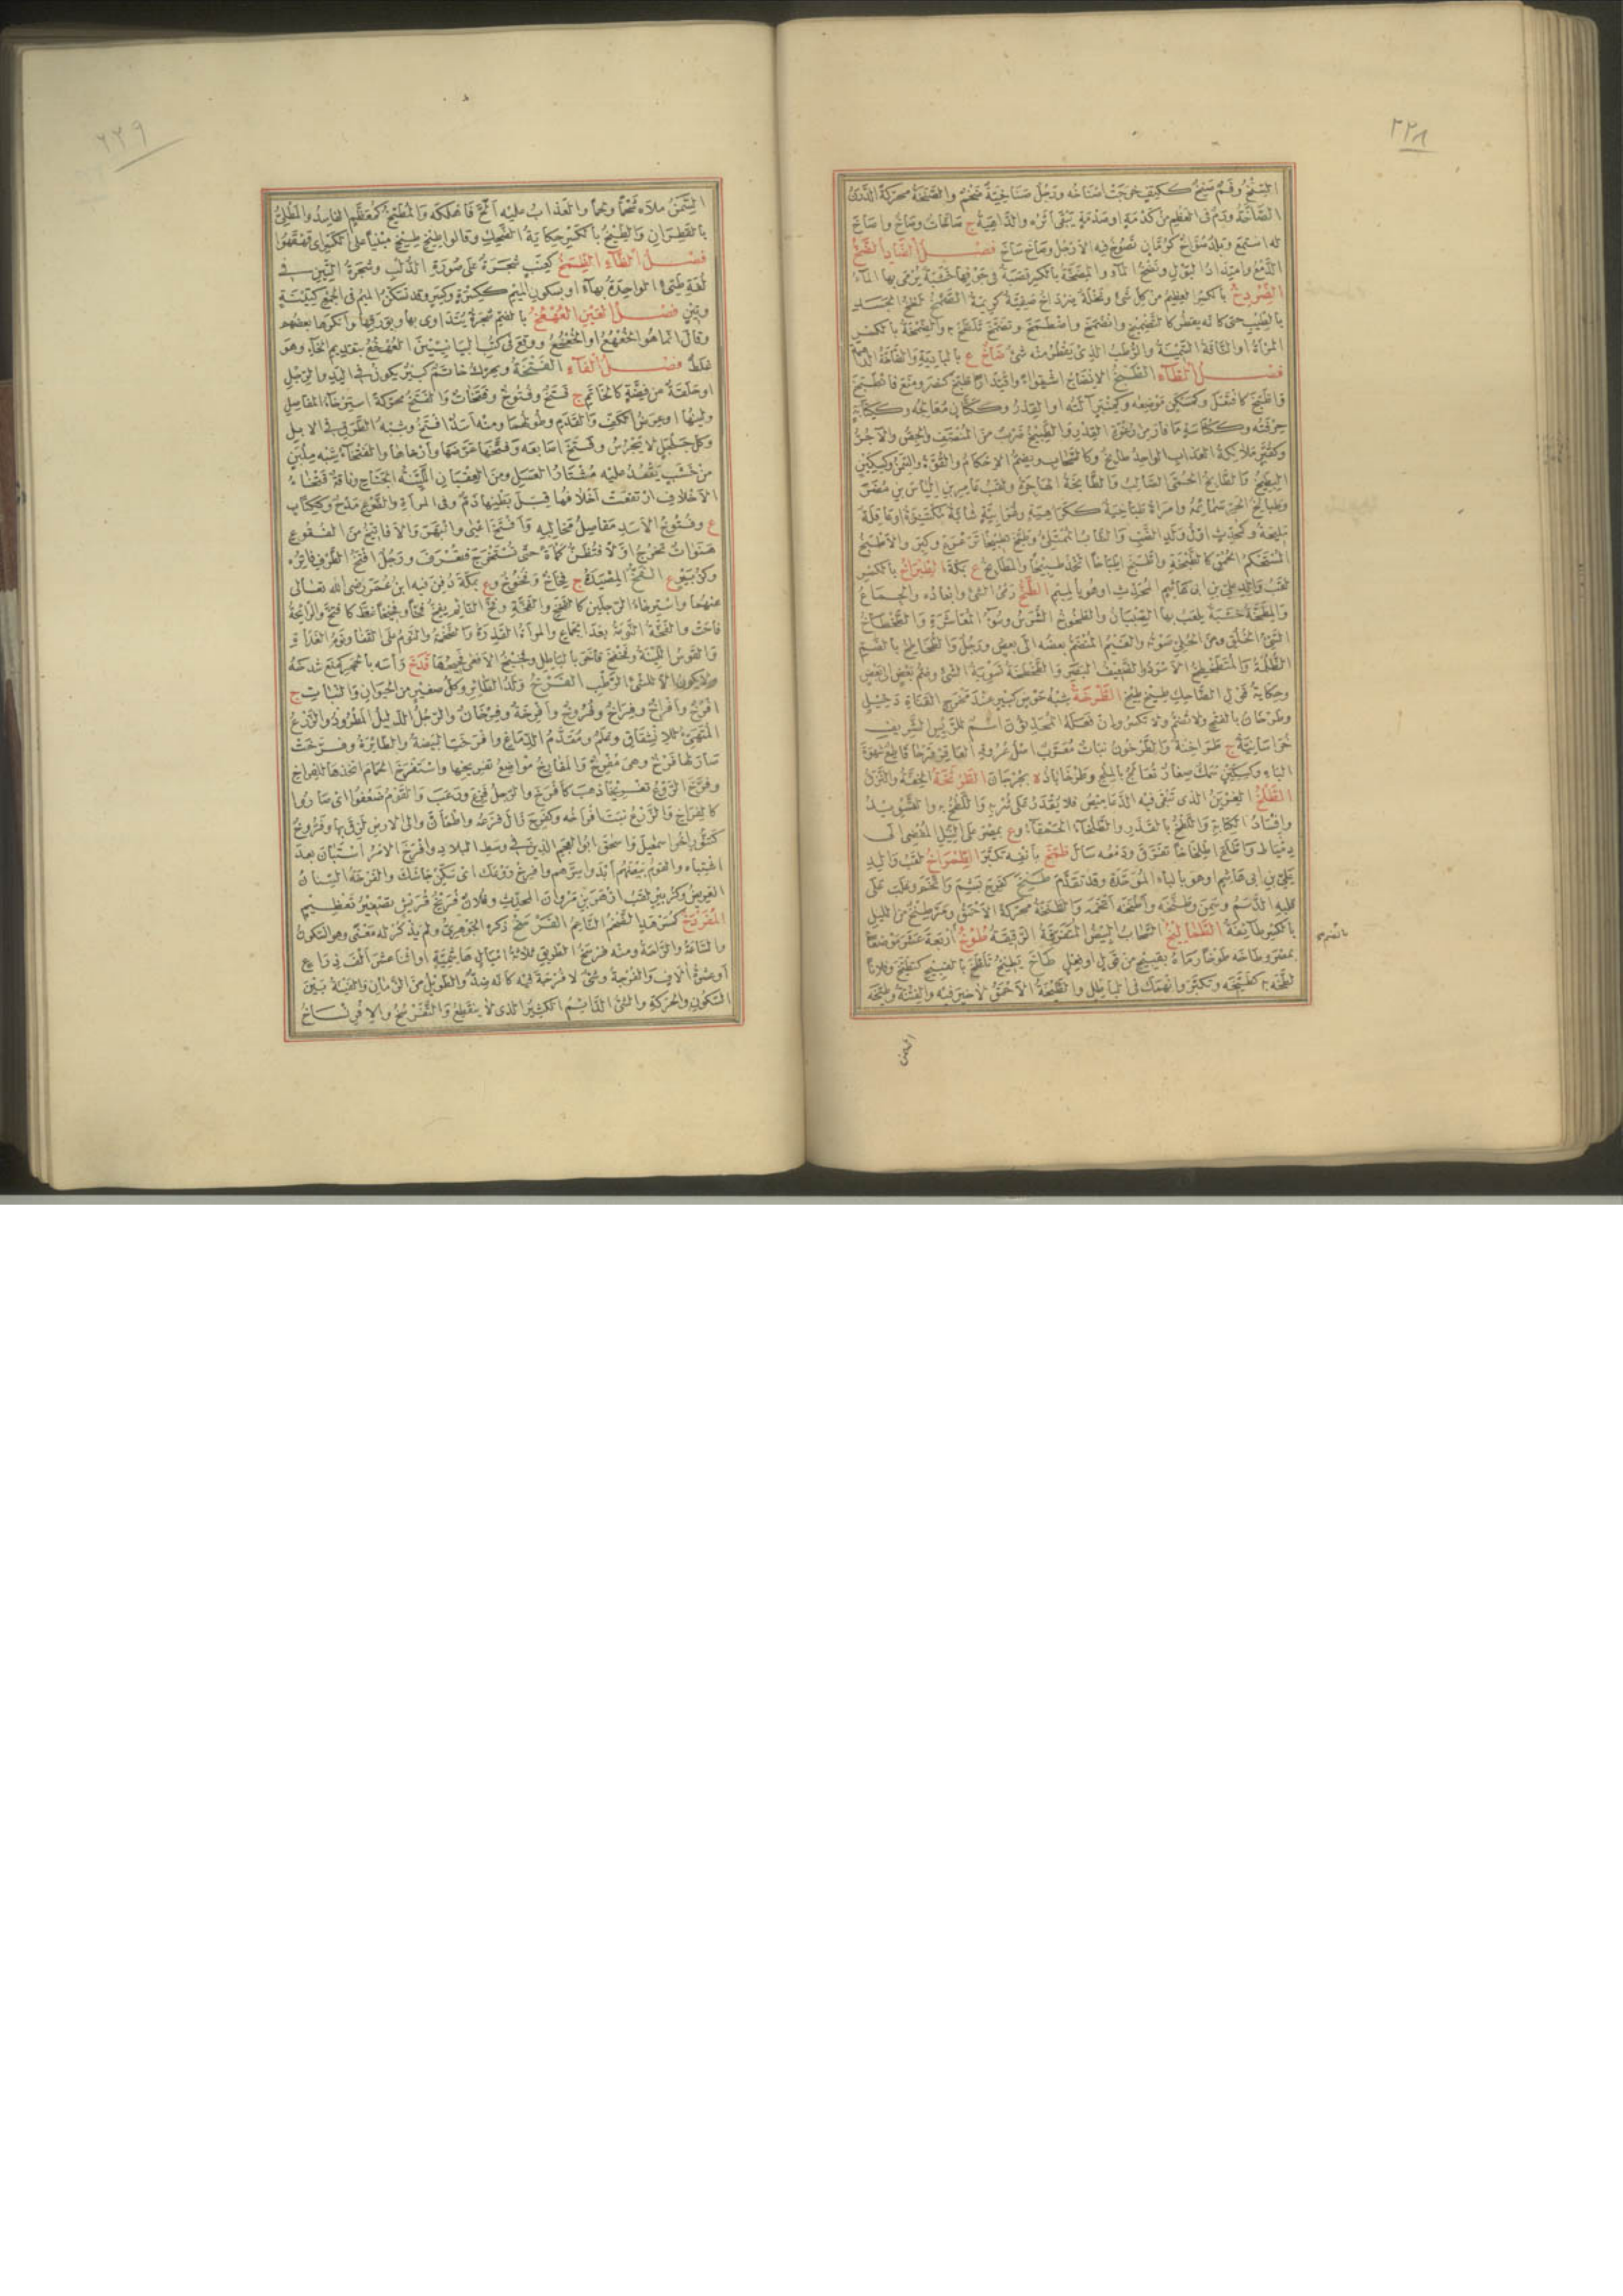 ٢٢٨
السنخ وفم سنخ ككتف خرجت اسناخه ورجل صناخية ضخم والصنخة محركة الدرن
الصاخة ورم في العظم من كدمة او صدمة يبقى اثره والداهية ج صاخات وصاخ واصاخ
له استمع وبلد صواخ كرمان تصوخ فيه الارجل وصاخ ساخ فصل الضاد الضخ
الدمع وامتداد البول ونضخ الماء والمضخة بالكسر قصبة في جوفها خشبة يرمى بها الماء
بالطيب حتى كانه يقطر كالتضميخ وانضمخ واضطمخ وتضمخ تلطخ به والضمخة بالكسر
المراة او الناقة السمينة والرطب الذي يقطر منه شئ ضاخ ع بالبادية
فصل الطاء الطبخ الانضاج اشتواء واقتدارا طبخ كنصر ومنع فانطبخ
واطبخ كافتعل وكمسكن موضعه وكمنبر آلته او القدر وككتان معالجه وككتابة
حرفته وككناسة ما فار من رغوة القدر والطبيخ ضرب من المنصف والجص والآجر
وكقبر ملائكة العذاب الواحد طابخ وكالسحاب ويضم الاحكام والقوة والسمن وكسكين
البطيخ والطابخ الحمى الصالب والطابخة الهاجرة ولقب عامر بن الياس بن مضر
وطبايخ الحر سمائمه وامراة طباخية ككراهية وغرابية شابة مكتنزة او عاقلة
مليحة وكمحدث اول ولد الضب والشاب الممتلئ وطبخ تطبيخا ترعرع وكبر والاطبخ
المستحكم الحمق كالطبخة واطبخ اطباخا اتخذ طبيخا والمطابخ ع بمكة الطبراخ بالكسر
لقب والد علي بن ابي هاشم المحدث او هو بالميم الطخ رمي الشئ وابعاده والجماع
والمطخة خشبة يلعب بها الصبيان والطخوخ الشرس وسوء المعاشرة والطخطاخ
الظلمة والمتطخطخ الاسود والضعيف البصر والطخطخة تسوية الشئ وضم بعض الى بعض
وحكاية قول الضاحك طيخ طيخ الطرخة شبه حوض كبير عند مخرج القناة دخيل
وطرخان بالفتح ولا تضم ولا تكسر وان فعله المحدثون اسم للرئيس الشريف
خراسانية ج طراخنة والطرخون نبات معرب اصل عروقه العاقر قرحا قاطع شهوة
الباه وكسكين سمك صغار تعالج بالملح وطرخاباذ ة بجرجان الطرثخة الخفة والنزق
الطلخ الغرين الذي تبقى فيه الدعاميص فلا يقدر على شربه واللطخ والتسويد
وافساد الكتابة واللطخ بالقذر والطلخاء الحمقاء وع بمصر على النيل المفضي الى
دمياط واطلخ اطلخاخا تفرق ودمعه سال طمخ بانفه تكبر الطمراخ لقب والد
علي بن ابي هاشم او هو بالباء الموحدة وقد تقدم طنخ كفرح بشم واتخم وغلب على
قلبه الدسم وسمن وطنخه واطنخه اتخمه والطنخة محركة الاحمق ومر طنخ من الليل
بالكسر طائفة الطخاليخ السحاب البيض المتفرقة الرقيقة طوخ اربعة عشر موضعا
بمصر وطاخه طوخا رماه بقبيح من قول او فعل طاخ يطيخ تلطخ بالقبيح كتطيخ وفلانا
لطخه به كطيخه وتكبر وانهمك في الباطل والطيخة الاحمق لا خير فيه والفتنة وطيخه
السمن
٢٢٩
السمن ملاه شحما ولحما والعذاب عليه الح فاهلكه والمطيخ كمعظم الفاسد والمطلي
بالقطران والطيخ بالكسر حكاية الضحك وقالوا طيخ طيخ مبنيا على الكسر اى قهقهوا
فصل الظاء الظمخ كعنب شجرة على صورة الدلب وشجرة التين في
لغة طيئ الواحدة بهاء او بسكون الميم ككسرة وكسر وقد تسكن الميم في الجمع كتينة
وتين فصل العين العهعخ بالضم شجرة يتداوى بها وبورقها وانكرها بعضهم
وقال انما هو الخعخع ووقع في كتب البيانيين الهعخع بتقديم الخاء وهو
غلط فصل الفاء الفتخة ويحرك خاتم كبير يكون في اليد والرجل
او حلقة من فضة كالخاتم ج فتخ وفتوخ وفتخات والفتخ محركة استرخاء المفاصل
ولينها او عرض الكف والقدم وطولهما ومنه اسد افتخ وشبه الطرق في الابل
وكل جلجل لا يجرس وفتخ اصابعه وفتخها عرضها وارخاها والفتخاء شبه ملبن
من خشب يقعد عليه مشتار العسل ومن العقبان اللينة الجناح وناقة فتخاء
الاخلاف ارتفعت اخلافها قبل بطنها ذم وفي المراة والضرع مدح وككتاب
ع وفتوخ الاسد مفاصل مخالبه وافتخ اعيى وانبهر والافاتيخ من الفقوع
هنوات تخرج اولا فتظن كماة حتى تستخرج فتعرف ورجل افتخ الطرف فاتره
وكزبير ع الفخ المصيدة ج فخاخ وفخوخ وع بمكة دفن فيه ابن عمر رضي الله تعالى
عنهما واسترخاء الرجلين كالفخخ والفخة وفخ النائم يفخ فخا وفخيخا غط كافتخ والرائحة
فاحت والفخة النومة بعد الجماع والمراة القذرة والضخمة والنوم على القفا ونوم الغداة
والقوس اللينة وفخفخ فاخر بالباطل وفخيخ الافعى فحيحها فدخ راسه بالحجر كمنع شدخه
ولا يكون الا للشئ الرطب الفرخ ولد الطائر وكل صغير من الحيوان والنبات ج
افرخ وافراخ وفراخ وفروخ وافرخة وفرخان والرجل الذليل المطرود والزرع
المتهيئ للانشقاق وعلم ومقدم الدماغ وافرخت البيضة والطائرة وفرخت
صار لها فرخ وهي مفرخ والمفارخ مواضع تفريخها واستفرخ الحمام اتخذها للفراخ
وفرخ الروع تفريخا ذهب كافرخ والرجل فزع ورعب والقوم ضعفوا اى صاروا
كالفراخ والزرع نبتت افراخه وكفرح زال فزعه واطمان والى الارض لزق بها وفروخ
كتنور اخو اسمعيل واسحق ابو العجم الذين في وسط البلاد وافرخ الامر استبان بعد
اشتباه والقوم بيضتهم ابدوا سرهم وافرخ روعك اى سكن جاشك والفرخة السنان
العريض وكزبير لقب ازهر بن مروان المحدث وفلان فريخ قريش تصغير تعظيم
الفرسخ ذكره الجوهري ولم يذكر له معنى وهو السكون
والساعة والراحة ومنه فرسخ الطريق ثلاثة اميال هاشمية او اثنا عشر الف ذراع
او عشرة آلاف والفرجة وشئ لا فرجة فيه كانه ضد والطويل من الزمان والفينة بين
السكون والحركة والشئ الدائم الكثير الذي لا ينقطع والتفرسخ والافرنساخ